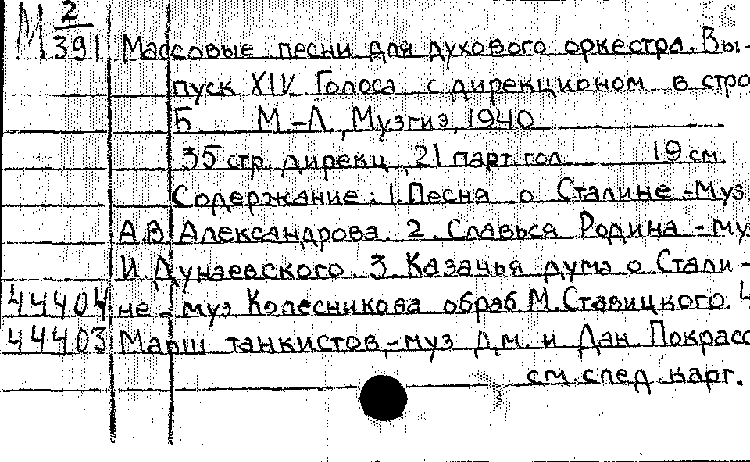 М 2/391 Массовые песни для духового оркестра. Вы-
пуск XIV Голоса с дирекционом в стро
Б М-Л, Музгиз, 1940
35 стр. дирекц, 21 парт. гол. 19 см.
Содержание: 1. Песня о Сталине - Муз
А.В Александрова. 2. Славься Родина - му
И. Дунаевского. 3. Казачья дума о Стали-
44404 не - муз Колесникова обраб М. Ставицкого. 4
44403 Марш танкистов, - муз Дм. и Дан. Покрасс
см. след. карт.